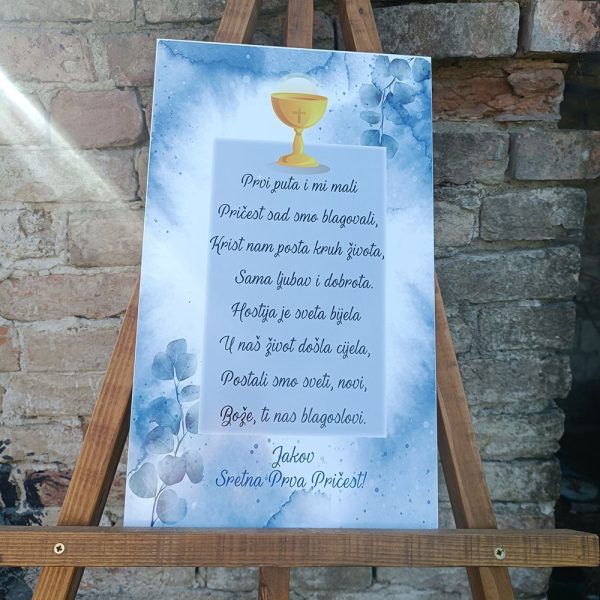 Prvi puta i mi mali
Pričest sad smo blagovali,
Krist nam posta kruh života,
Sama ljubav i dobrota.
Hostija je sveta bijela
U naš život došla cijela,
Postali smo sveti, novi,
Bože, ti nas blagoslovi.
Jakov
Sretna Prva Pričest!